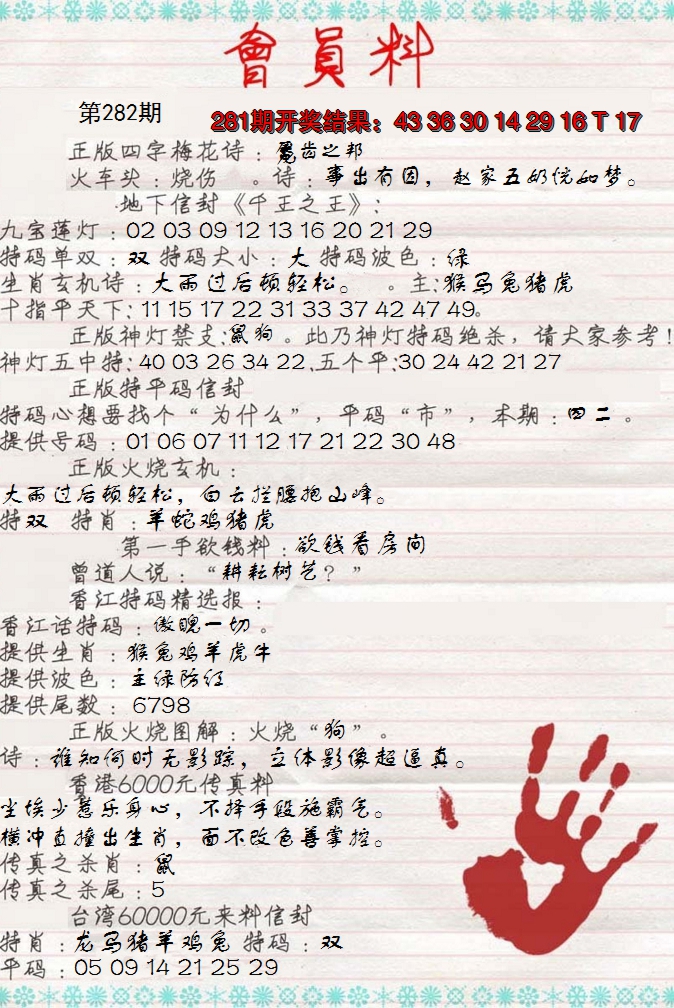 會員料
第282期
281期开奖结果：43 36 30 14 29 16 T 17
正版四字梅花诗：冕齿之邦
火车头：烧伤　。诗：事出有因，赵家五奶恍如梦。
地下信封《千王之王》：
九宝莲灯：02 03 09 12 13 16 20 21 29
特码单双：双 特码大小：大 特码波色：绿
生肖玄机诗：大雨过后顿轻松。　。主：猴马兔猪虎
十指平天下：11 15 17 22 31 33 37 42 47 49。
正版神灯禁支：鼠狗。此乃神灯特码绝杀，请大家参考！
神灯五中特：40 03 26 34 22.五个平：30 24 42 21 27
正版特平码信封
特码心想要找个“为什么”，平码“市”，本期：四二。
提供号码：01 06 07 11 12 17 21 22 30 48
正版火烧玄机：
大雨过后顿轻松，白云拦腰抱山峰。
特双　特肖：羊蛇鸡猪虎
第一手欲钱料：欲钱看房间
曾道人说：“耕耘树艺？”
香江特码精选报：
香江话特码：傲睨一切。
提供生肖：猴兔鸡羊虎牛
提供波色：主绿防红
提供尾数：6798
正版火烧图解：火烧“狗”。
诗：谁知何时无影踪，立体影像超逼真。
香港6000元传真料
尘埃少惹乐身心，不择手段施霸气。
横冲直撞出生肖，面不改色善掌控。
传真之杀肖：鼠
传真之杀尾：5
台湾60000元来料信封
特肖：龙马猪羊鸡兔 特码：双
平码：05 09 14 21 25 29